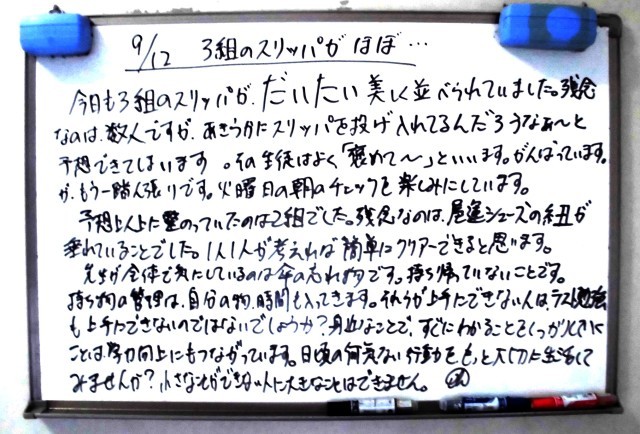 9/12 3組のスリッパが ほぼ…
今日も3組のスリッパが、だいたい美しく並べられていました。残念
なのは、数人ですが、あきらかにスリッパを投げ入れてるんだろうなぁ〜と
予想できてしまいます。その生徒はよく「褒めて〜」といいます。がんばっています。
が、もう一踏ん張りです。火曜日の朝のチェックを楽しみにしています。
予想以上に整のっていたのは2組でした。残念なのは、屋運シューズの紐が
垂れていることでした。1人1人が考えれば簡単にクリアーできると思います。
先生が全体で気にしているのは傘の忘れ物です。持ち帰っていないことです。
持ち物の管理は、自分の物、時間も入ってきます。それらが上手にできない人は、テスト勉強
も上手にできないのではないでしょうか?身近なことで、すぐにわかることをしっかり
ことは、学力向上にもつながっています。日頃の何気ない行動をもっと大切に生活して
みませんか?小さなことができない人に大きなことはできません。